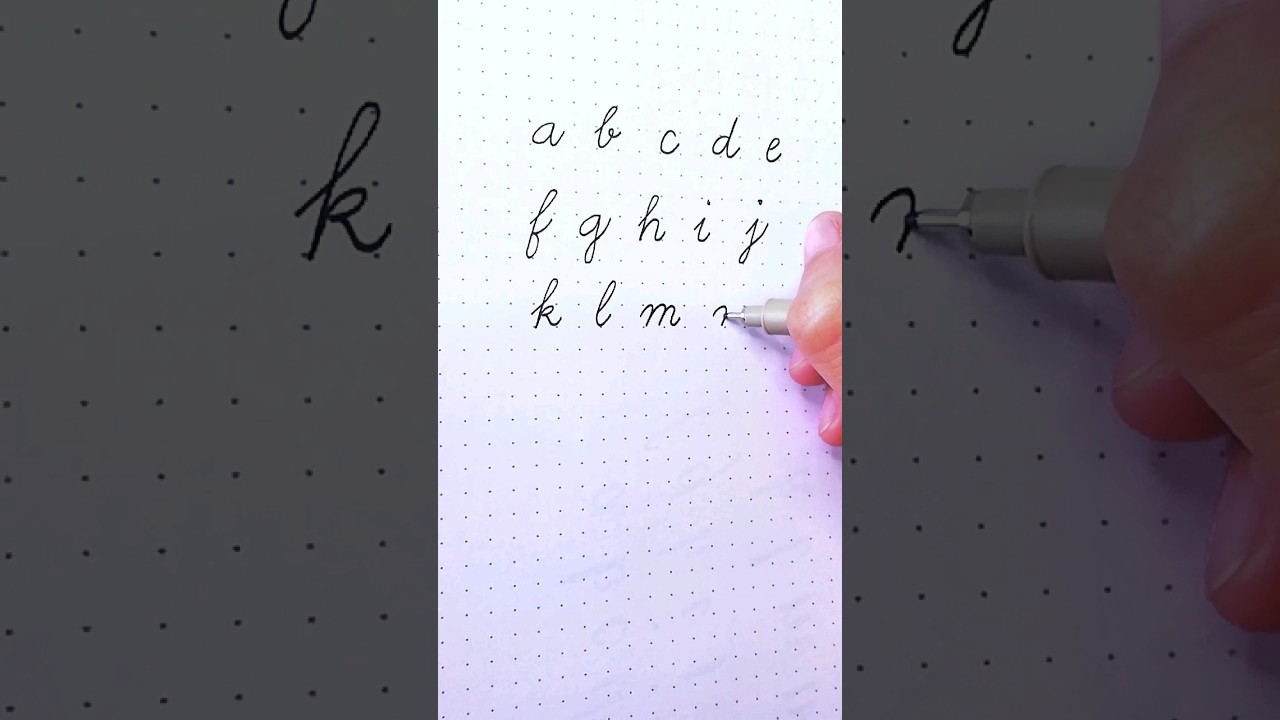 a b c d e
f g h i j
k l m n